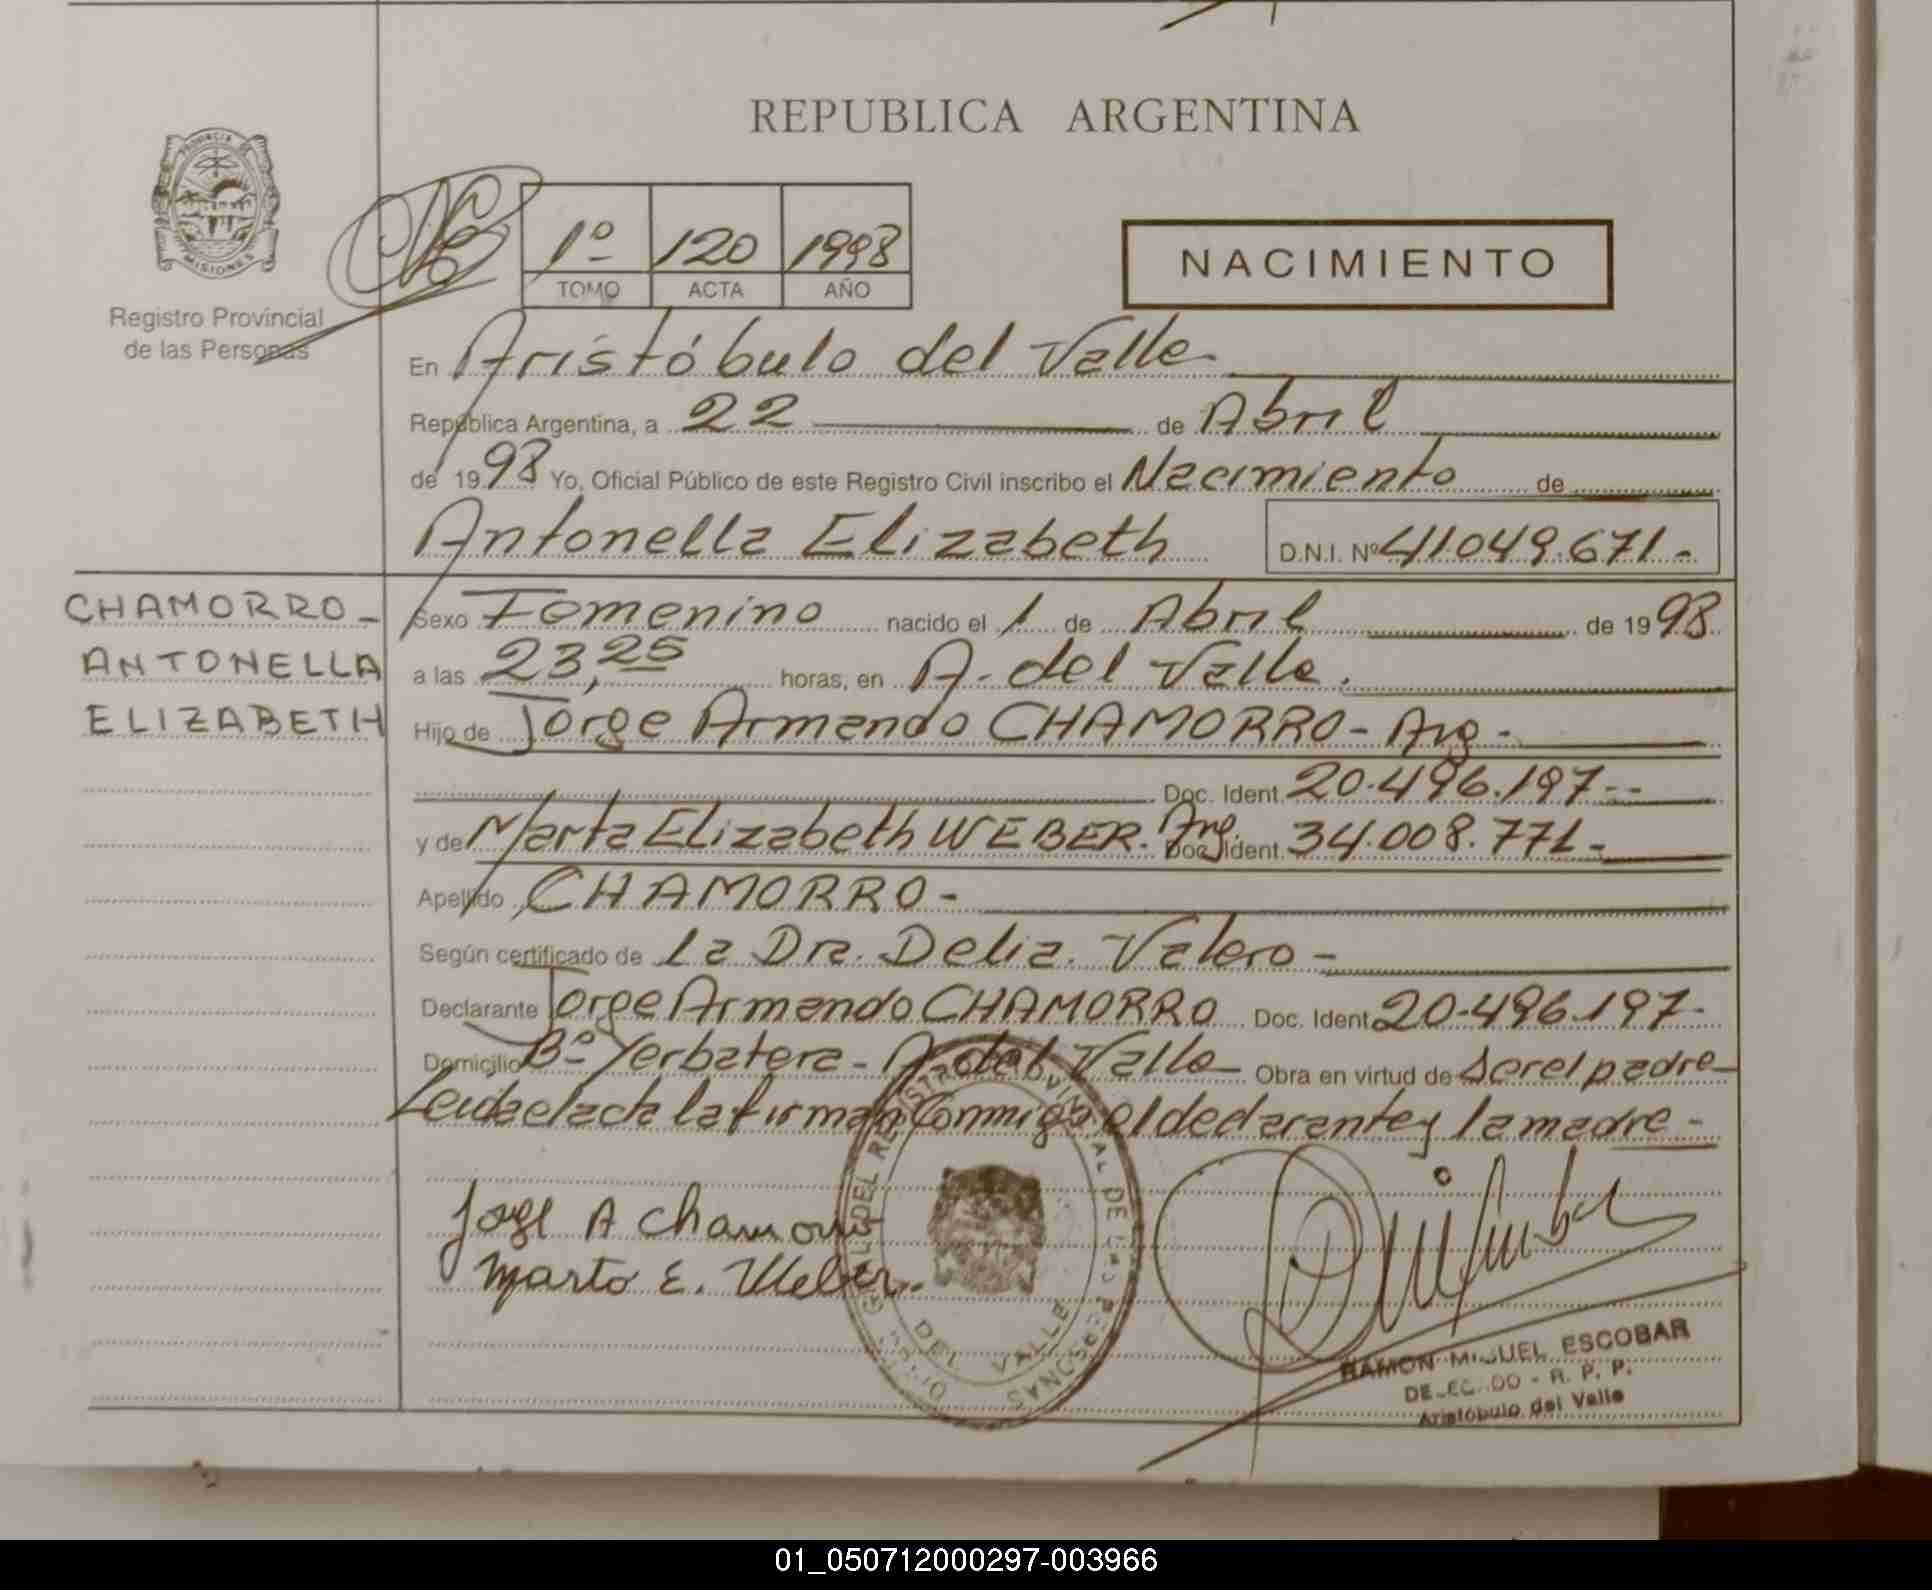 REPUBLICA ARGENTINA
PROVINCIA DE
MISIONES
Registro Provincial
de las Personas
1º 120 1998
TOMO ACTA AÑO
NACIMIENTO
En Aristóbulo del Valle
República Argentina, a 22 de Abril
de 1998 Yo, Oficial Público de este Registro Civil inscribo el Nacimiento de
Antonella Elizabeth D.N.I. Nº 41.049.671.-
CHAMORRO-
ANTONELLA
ELIZABETH
Sexo Femenino nacido el 1 de Abril de 1998
a las 23,25 horas, en A. del Valle.
Hijo de Jorge Armando CHAMORRO - Arg -
Doc. Ident. 20.496.197--
y de Marta Elizabeth WEBER. Arg. Doc. Ident. 34.008.771-
Apellido CHAMORRO-
Según certificado de la Dra. Delia. Valero-
Declarante Jorge Armando CHAMORRO Doc. Ident. 20.496.197-
Domicilio Bº Yerbatera - A. del Valle Obra en virtud de ser el padre
Leida el acta la firman Conmigo el declarante y la madre -
Jorge A Chamorro
Marta E. Weber.
DEL VALLE
RAMON MIGUEL ESCOBAR
DELEGADO - R. P. P.
Aristóbulo del Valle
01_050712000297-003966